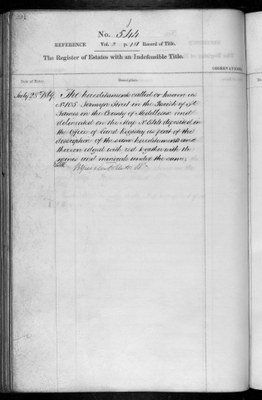 No. 544
REFERENCE Vol. 3 p. 218 Record of Title.
The Register of Estates with an Indefeasible Title.
OBSERVATIONS
Date of Entry. Description.
July 25th 1864 The hereditaments called or known as
No 105 Jermyn Street in the Parish of St
James in the County of Middlesex and
delineated on the Map No 544 deposited in
the Office of Land Registry as part of the
description of the same hereditaments and
thereon edged with red together with the
mines and minerals under the same